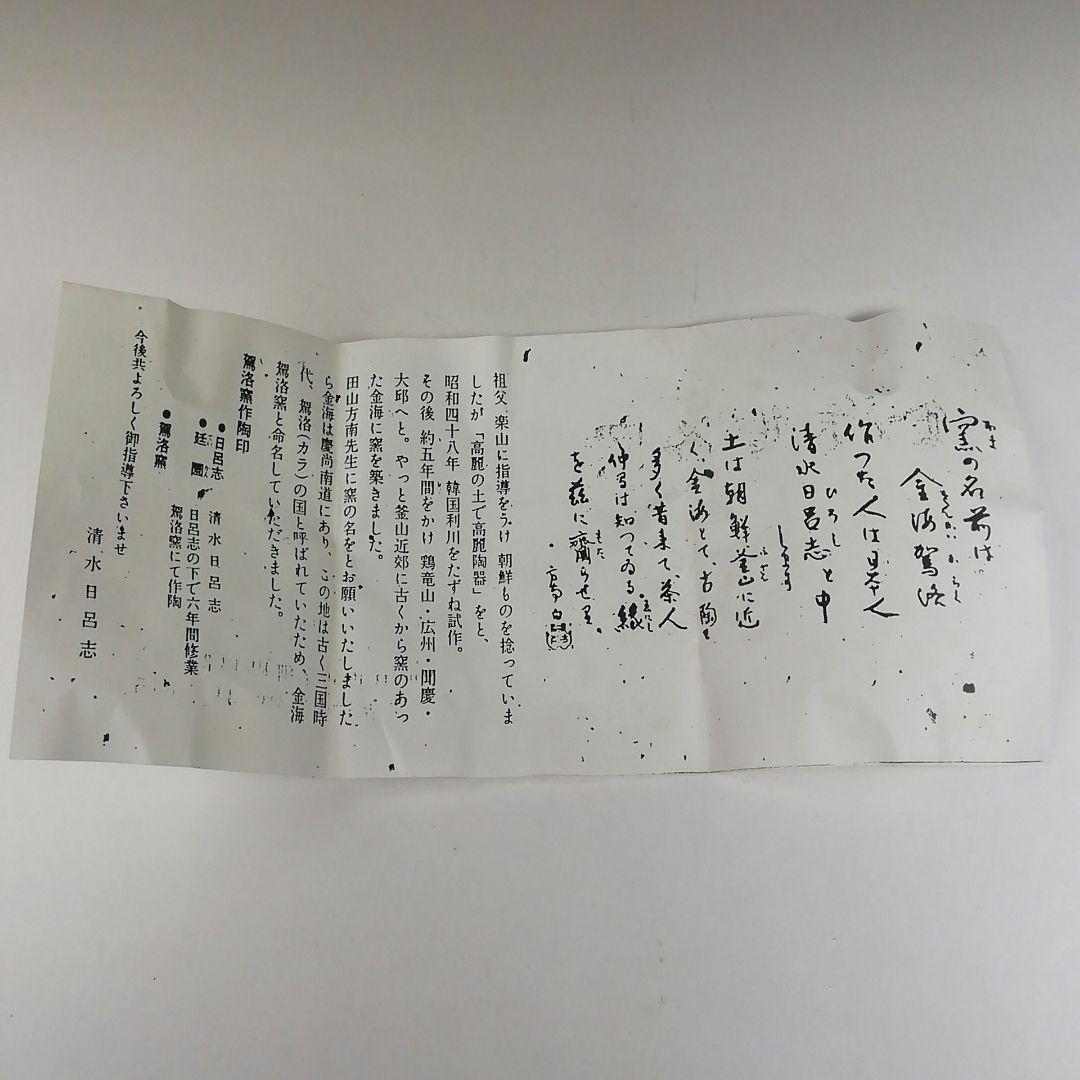 窯の名前は
かま
金海駕洛
きんかいからく
作つた人は日本人
清水日呂志と申
ひろし
土は朝鮮釜山に近
ふざん
く、金海とて、古陶も
多く昔来て、茶人
仲間は知つてゐる縁
えにし
を茲に齎らせり。
もた
方南白
祖父 楽山に指導をうけ 朝鮮ものを捻っていま
したが「高麗の土で高麗陶器」をと、
昭和四十八年 韓国利川をたずね試作。
その後 約五年間をかけ 鶏竜山・広州・聞慶・
大邱へと。やっと釜山近郊に古くから窯のあっ
た金海に窯を築きました。
田山方南先生に窯の名をとお願いいたしました
ら金海は慶尚南道にあり、この地は古く三国時
代、駕洛(カラ)の国と呼ばれていたため、金海
駕洛窯と命名していただきました。
駕洛窯作陶印
●日呂志 清水日呂志
●廷 日呂志の下で六年間修業
駕洛窯にて作陶
●駕洛窯
今後共よろしく御指導下さいませ
清水日呂志